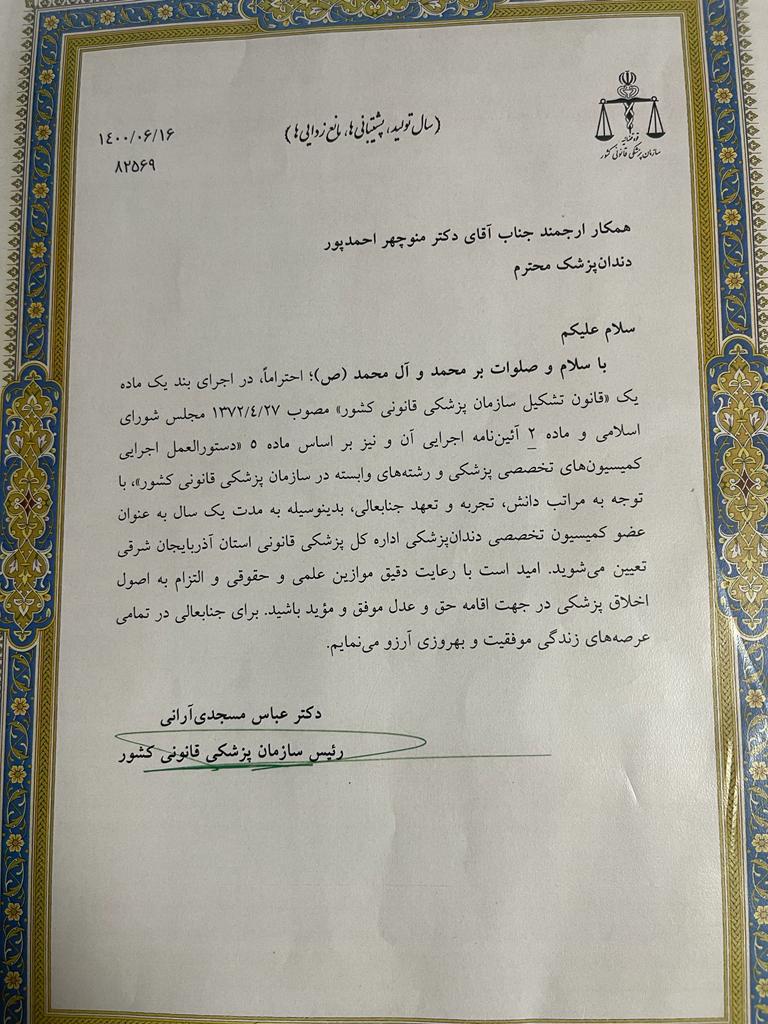 قوه قضائیه
سازمان پزشکی قانونی کشور
(سال تولید، پشتیبانی ها، مانع زدایی ها)
۱۴۰۰/۰۶/۱۶
۸۲۵۶۹
همکار ارجمند جناب آقای دکتر منوچهر احمدپور
دندان‌پزشک محترم
سلام علیکم
با سلام و صلوات بر محمد و آل محمد (ص)؛ احتراماً، در اجرای بند یک ماده
یک «قانون تشکیل سازمان پزشکی قانونی کشور» مصوب ۱۳۷۲/۴/۲۷ مجلس شورای
اسلامی و ماده ۲ آئین‌نامه اجرایی آن و نیز بر اساس ماده ۵ «دستورالعمل اجرایی
کمیسیون‌های تخصصی پزشکی و رشته‌های وابسته در سازمان پزشکی قانونی کشور»، با
توجه به مراتب دانش، تجربه و تعهد جنابعالی، بدینوسیله به مدت یک سال به عنوان
عضو کمیسیون تخصصی دندان‌پزشکی اداره کل پزشکی قانونی استان آذربایجان شرقی
تعیین می‌شوید. امید است با رعایت دقیق موازین علمی و حقوقی و التزام به اصول
اخلاق پزشکی در جهت اقامه حق و عدل موفق و مؤید باشید. برای جنابعالی در تمامی
عرصه‌های زندگی موفقیت و بهروزی آرزو می‌نمایم.
دکتر عباس مسجدی‌آرانی
رئیس سازمان پزشکی قانونی کشور